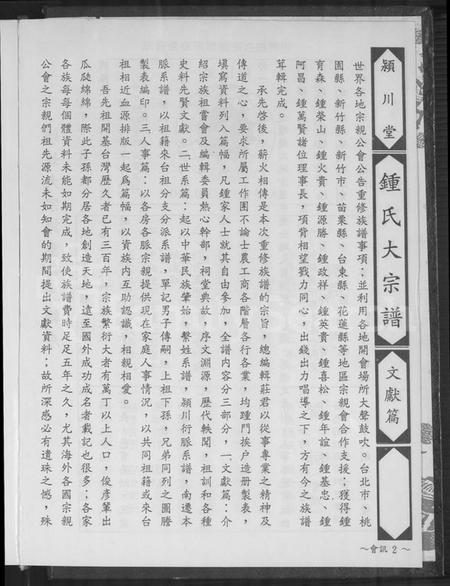 潁川堂
鍾氏大宗譜
文獻篇
～會訊2～
世界各地宗親公會公告重修族譜事項；並利用各地開會場所大聲鼓吹。台北市、桃
園縣、新竹縣、新竹市、苗栗縣、台東縣、花蓮縣等地區宗親會合作支援；獲得鍾
育森、鍾榮山、鍾火貴、鍾源勝、鍾政祥、鍾英貴、鍾喜松、鍾年誼、鍾基忠、鍾
阿昌、鍾萬賢諸位理事長，項背相望戮力同心，出錢出力唱導之下，方有今之族譜
草輯完成。
承先啓後，薪火相傳是本次重修族譜的宗旨，總編輯莊君以從事專業之精神及
傳道之心，要求所屬工作團不論士農工商各階層各行各業，均踵門挨户造册製表，
填寫資料列入篇幅，凡鍾家人士就其自由參加，全譜內容分三部分，一、文獻篇：介
紹宗族祖嘗會及編輯委員熱心幹部，祠堂典故，序文淵源，歷代軼聞，祖訓和各種
史料先賢文獻。二世系篇：起以中華民族肇始，繫姓系譜，潁川衍脈系譜，南遷本
脈系譜，以祖籍來台祖分支分派系譜，單記男子傳嗣，上祖下孫，兄弟同列之圖騰
製表編印。三人事篇：以各房各脈宗親提供現在家庭人事情況，以共同祖籍或來台
祖相近血源排版一起爲篇幅，以資族內互助認識，相親相愛。
吾先祖開基台灣歷久者已有三百年，宗族繁衍大者有萬丁以上人口，俊彦輩出
瓜瓞綿綿，際此子孫都分居各地創造天地，遠至國外成功成名者載記也很多；各家
各族每每個體資料未能如期完成，致使族譜費時足足五年之久，尤其海外各國宗親
公會之宗親們祖先源流未如知會的期間提出文獻資料；故所深感必有遺珠之憾，殊